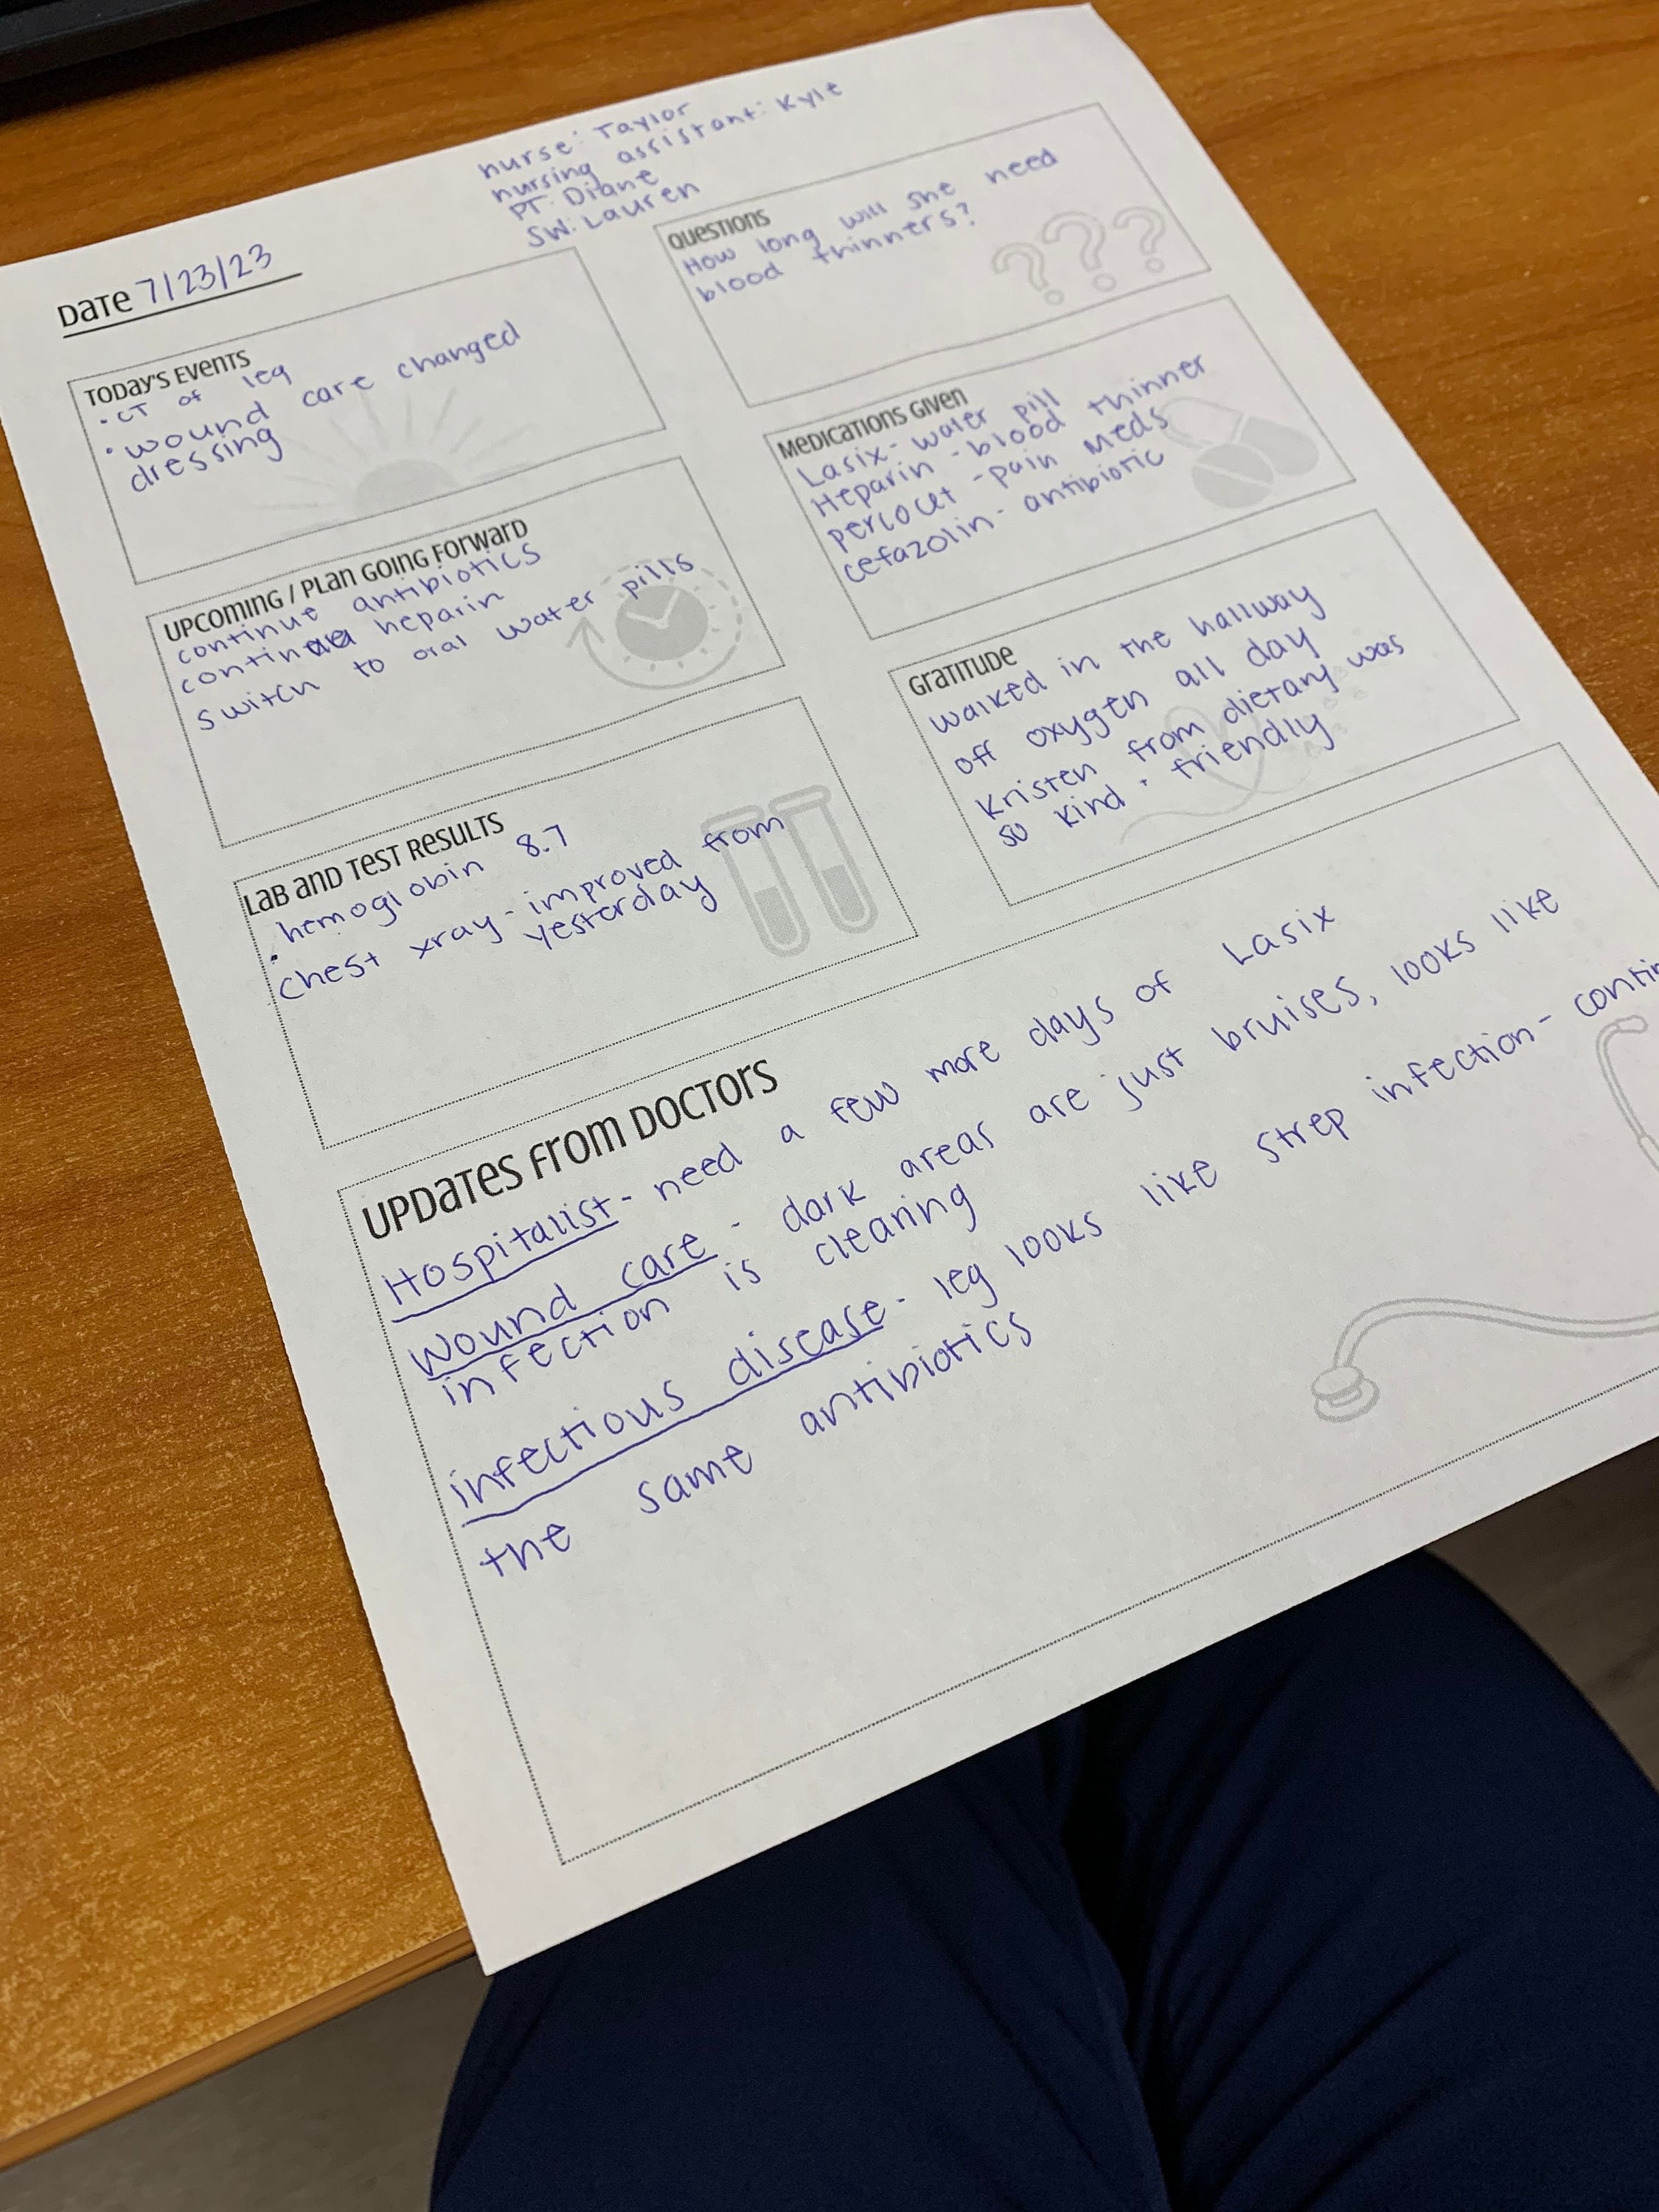 nurse: Taylor
nursing assistant: Kyle
PT: Diane
SW: Lauren
Date 7/23/23
Today's Events
• CT of leg
• wound care changed
dressing
Questions
How long will she need
blood thinners?
Upcoming / Plan Going Forward
continue antibiotics
continue heparin
switch to oral water pills
Medications Given
Lasix - water pill
Heparin - blood thinner
percocet - pain meds
cefazolin - antibiotic
Lab and Test Results
• hemoglobin 8.7
• chest xray - improved from
yesterday
Gratitude
walked in the hallway
off oxygen all day
Kristen from dietary was
so kind + friendly
Updates From Doctors
Hospitalist - need a few more days of Lasix
Wound care - dark areas are just bruises, looks like
infection is clearing
infectious disease - leg looks like strep infection - contin
the same antibiotics